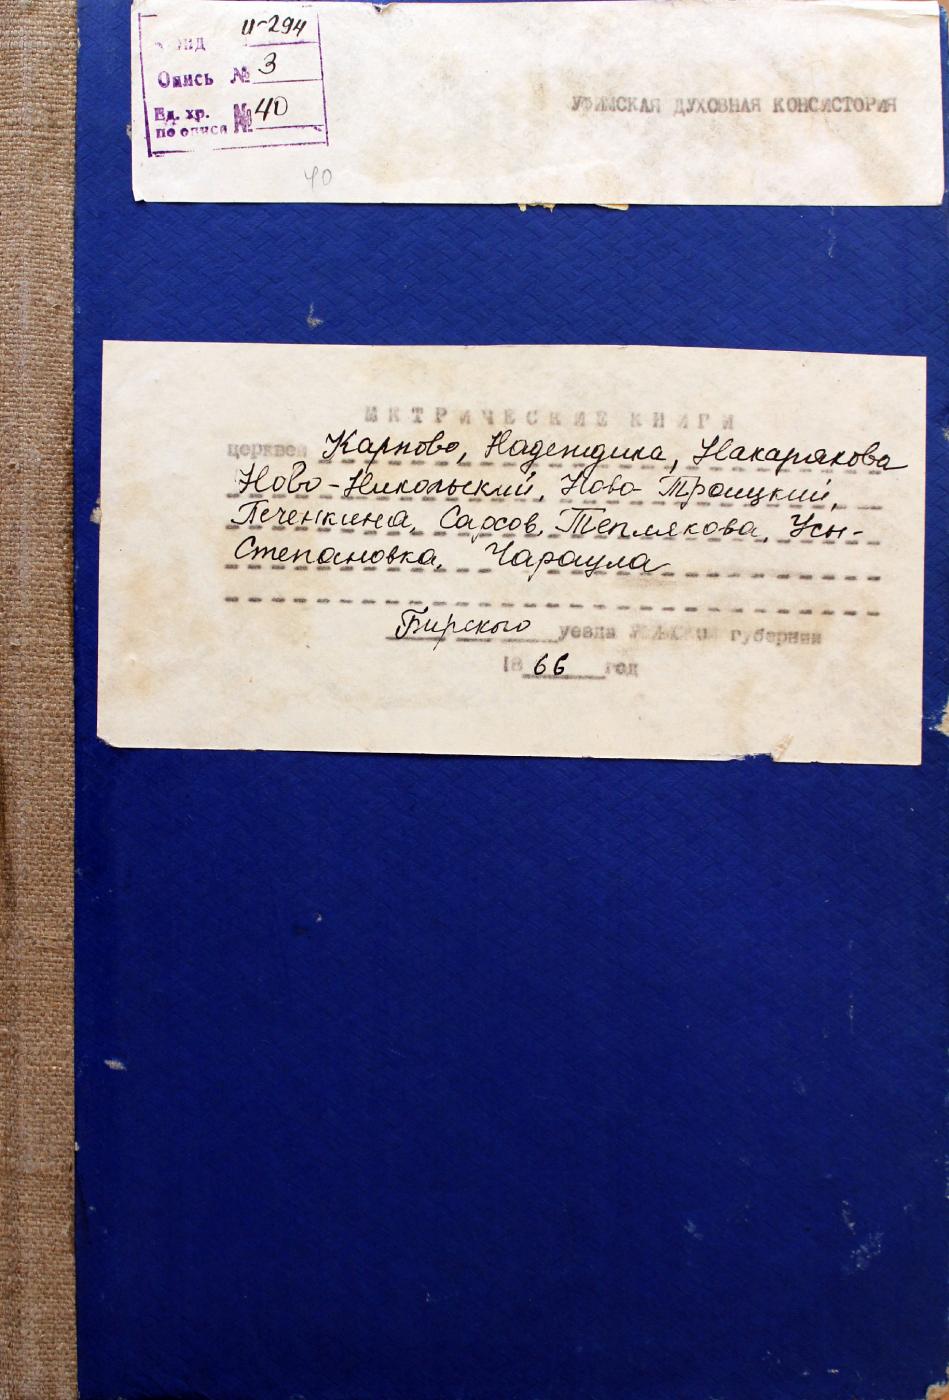 Фонд И-294
Опись № 3
Ед. хр.
по описи № 40
40
УФИМСКАЯ ДУХОВНАЯ КОНСИСТОРИЯ
МЕТРИЧЕСКИЕ КНИГИ
церквей Карпово, Надеждика, Накарякова
Ново-Никольский, Ново-Троицкий,
Печенкина, Сахов, Теплякова, Усн-
Степановка, Чараула
Бирского уезда Уфимской губернии
1866 год